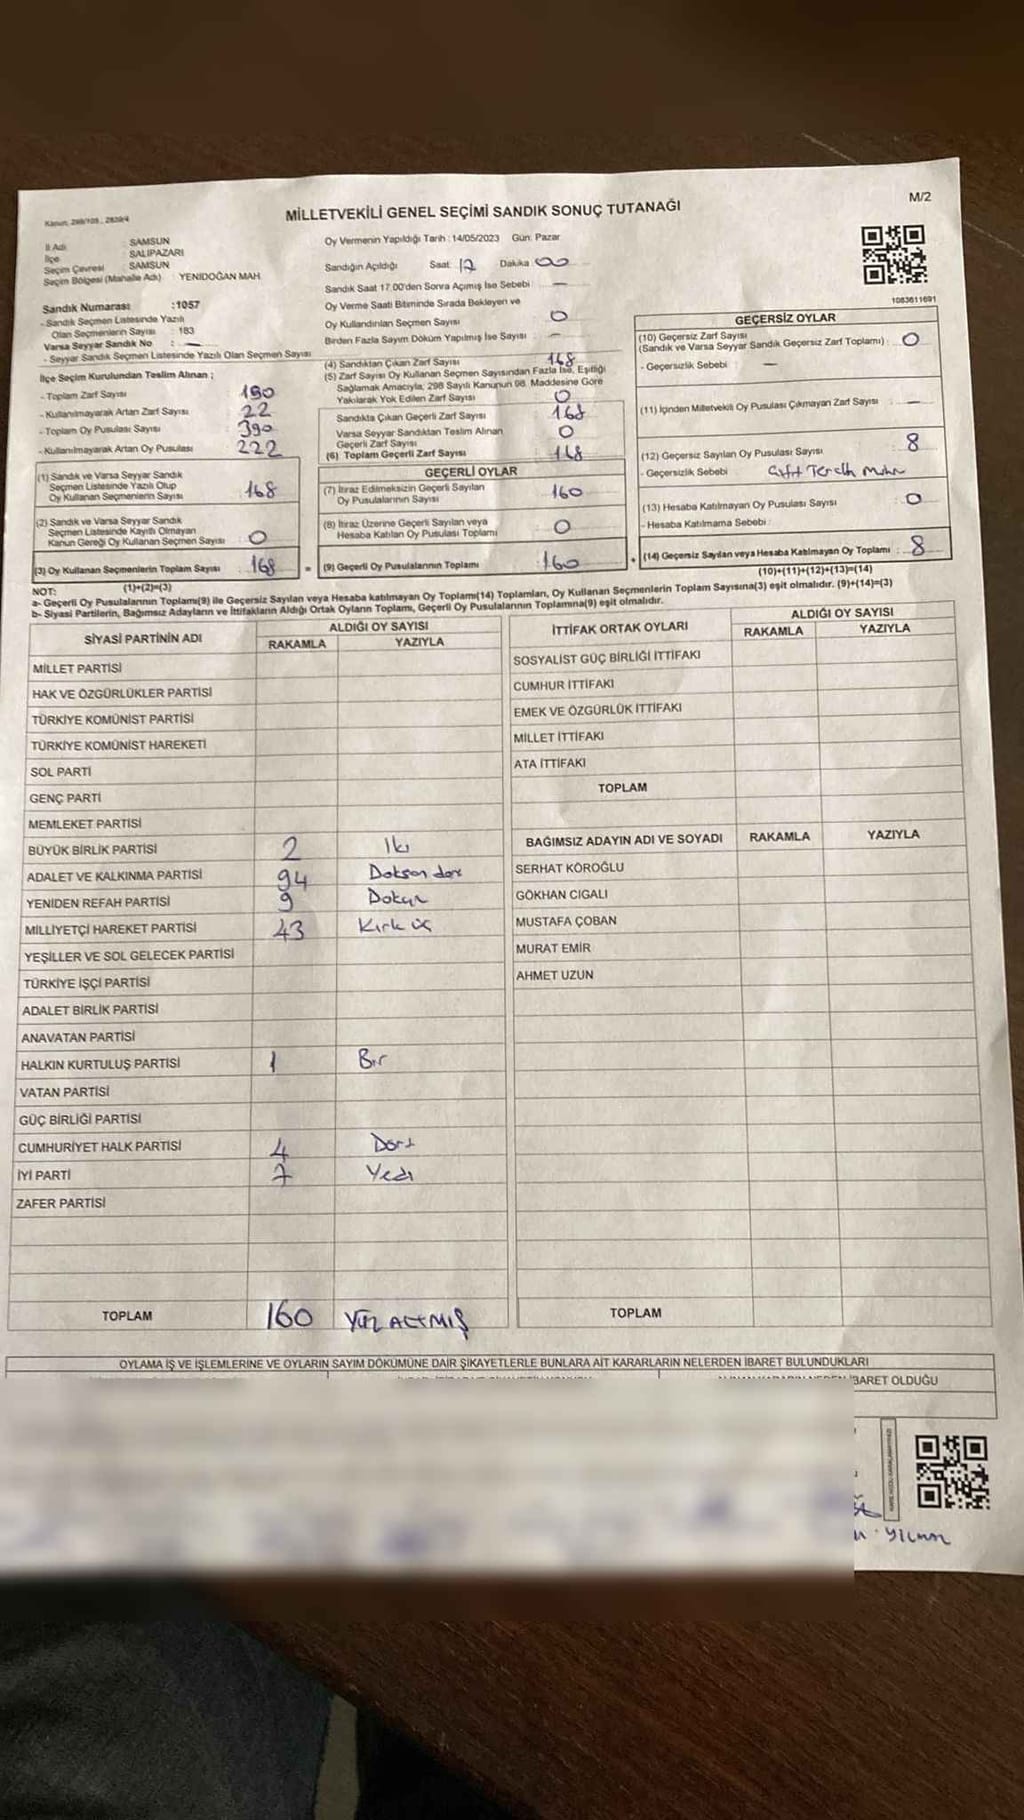 Kanun: 298/105 , 2839/4
MİLLETVEKİLİ GENEL SEÇİMİ SANDIK SONUÇ TUTANAĞI
M/2
İl Adı : SAMSUN
İlçe : SALIPAZARI
Seçim Çevresi : SAMSUN
Seçim Bölgesi (Mahalle Adı) : YENIDOĞAN MAH.
Sandık Numarası :1057
- Sandık Seçmen Listesinde Yazılı
Olan Seçmenlerin Sayısı : 183
Varsa Seyyar Sandık No : —
- Seyyar Sandık Seçmen Listesinde Yazılı Olan Seçmen Sayısı
Oy Vermenin Yapıldığı Tarih : 14/05/2023 Gün: Pazar
Sandığın Açıldığı Saat: 17 Dakika 00
Sandık Saat 17.00'den Sonra Açımış İse Sebebi —
Oy Verme Saati Bitiminde Sırada Bekleyen ve
Oy Kullandırılan Seçmen Sayısı 0
Birden Fazla Sayım Döküm Yapılmış İse Sayısı : —
1083611691
İlçe Seçim Kurulundan Teslim Alınan ;
- Toplam Zarf Sayısı : 190
- Kullanılmayarak Artan Zarf Sayısı : 22
- Toplam Oy Pusulası Sayısı : 390
- Kullanılmayarak Artan Oy Pusulası : 222
(1) Sandık ve Varsa Seyyar Sandık
Seçmen Listesinde Yazılı Olup
Oy Kullanan Seçmenlerin Sayısı : 168
(2) Sandık ve Varsa Seyyar Sandık
Seçmen Listesinde Kayıtlı Olmayan
Kanun Gereği Oy Kullanan Seçmen Sayısı : 0
(3) Oy Kullanan Seçmenlerin Toplam Sayısı : 168
(1)+(2)=(3)
(4) Sandıktan Çıkan Zarf Sayısı : 168
(5) Zarf Sayısı Oy Kullanan Seçmen Sayısından Fazla İse, Eşitliği
Sağlamak Amacıyla, 298 Sayılı Kanunun 98. Maddesine Göre
Yakılarak Yok Edilen Zarf Sayısı : 0
Sandıkta Çıkan Geçerli Zarf Sayısı : 168
Varsa Seyyar Sandıktan Teslim Alınan
Geçerli Zarf Sayısı : 0
(6) Toplam Geçerli Zarf Sayısı : 168
GEÇERLİ OYLAR
(7) İtiraz Edilmeksizin Geçerli Sayılan
Oy Pusulalarının Sayısı : 160
(8) İtiraz Üzerine Geçerli Sayılan veya
Hesaba Katılan Oy Pusulası Toplamı : 0
= (9) Geçerli Oy Pusulalarının Toplamı : 160
GEÇERSİZ OYLAR
(10) Geçersiz Zarf Sayısı
(Sandık ve Varsa Seyyar Sandık Geçersiz Zarf Toplamı) : 0
- Geçersizlik Sebebi : —
(11) İçinden Milletvekili Oy Pusulası Çıkmayan Zarf Sayısı : —
(12) Geçersiz Sayılan Oy Pusulası Sayısı : 8
- Geçersizlik Sebebi :
(13) Hesaba Katılmayan Oy Pusulası Sayısı : 0
- Hesaba Katılmama Sebebi :
+ (14) Geçersiz Sayılan veya Hesaba Katılmayan Oy Toplamı : 8
(10)+(11)+(12)+(13)=(14)
NOT:
a- Geçerli Oy Pusulalarının Toplamı(9) ile Geçersiz Sayılan veya Hesaba katılmayan Oy Toplamı(14) Toplamları, Oy Kullanan Seçmenlerin Toplam Sayısına(3) eşit olmalıdır. (9)+(14)=(3)
b- Siyasi Partilerin, Bağımsız Adayların ve İttifakların Aldığı Ortak Oyların Toplamı, Geçerli Oy Pusulalarının Toplamına(9) eşit olmalıdır.
SİYASİ PARTİNİN ADI ALDIĞI OY SAYISI
RAKAMLA YAZIYLA
MİLLET PARTİSİ
HAK VE ÖZGÜRLÜKLER PARTİSİ
TÜRKİYE KOMÜNİST PARTİSİ
TÜRKİYE KOMÜNİST HAREKETİ
SOL PARTİ
GENÇ PARTİ
MEMLEKET PARTİSİ
BÜYÜK BİRLİK PARTİSİ 2 İki
ADALET VE KALKINMA PARTİSİ 94 Doksan dört
YENİDEN REFAH PARTİSİ 9 Dokuz
MİLLİYETÇİ HAREKET PARTİSİ 43 Kırk üç
YEŞİLLER VE SOL GELECEK PARTİSİ
TÜRKİYE İŞÇİ PARTİSİ
ADALET BİRLİK PARTİSİ
ANAVATAN PARTİSİ
HALKIN KURTULUŞ PARTİSİ 1 Bir
VATAN PARTİSİ
GÜÇ BİRLİĞİ PARTİSİ
CUMHURİYET HALK PARTİSİ 4 Dört
İYİ PARTİ 7 Yedi
ZAFER PARTİSİ
TOPLAM 160 YÜZ ALTMIŞ
İTTİFAK ORTAK OYLARI ALDIĞI OY SAYISI
RAKAMLA YAZIYLA
SOSYALİST GÜÇ BİRLİĞİ İTTİFAKI
CUMHUR İTTİFAKI
EMEK VE ÖZGÜRLÜK İTTİFAKI
MİLLET İTTİFAKI
ATA İTTİFAKI
TOPLAM
BAĞIMSIZ ADAYIN ADI VE SOYADI RAKAMLA YAZIYLA
SERHAT KÖROĞLU
GÖKHAN CIGALI
MUSTAFA ÇOBAN
MURAT EMİR
AHMET UZUN
TOPLAM
OYLAMA İŞ VE İŞLEMLERİNE VE OYLARIN SAYIM DÖKÜMÜNE DAİR ŞİKAYETLERLE BUNLARA AİT KARARLARIN NELERDEN İBARET BULUNDUKLARI
İBARET OLDUĞU
YILMAZ